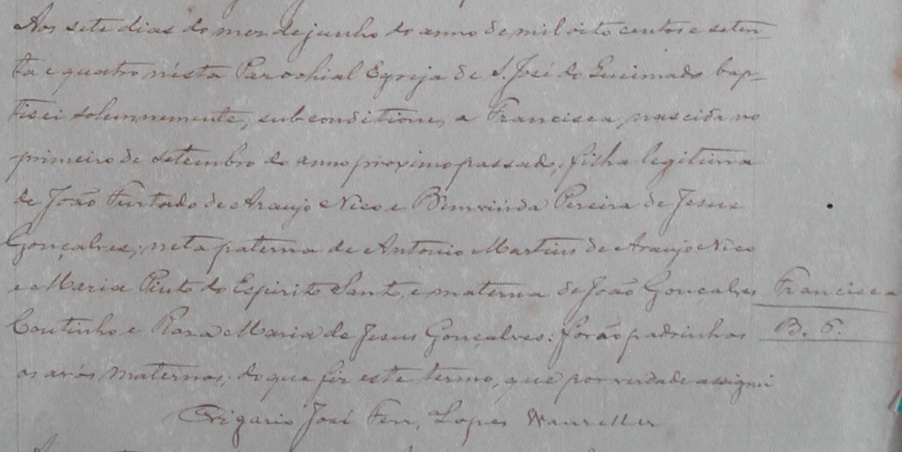 Aos sete dias do mes de junho do anno de mil oito centos e seten-
ta e quatro nésta Parochial Egreja de S. José do Queimado bap-
tisei solemnemente, sub conditione, a Francisca, nascida no
primeiro de setembro do anno proximo passado, filha legitima
de João Furtado de Araujo Nico e Bemvinda Pereira de Jesus
Gonçalves; neta paterna de Antonio Martins de Araujo Nico
e Maria Pinto do Espirito Santo, e materna de João Gonçalves
Francisca
Coutinho e Rosa Maria de Jesus Gonçalves: forão padrinhos
B. P.
os avós maternos. do que fiz este termo, que por verdade assignei
Vigario José Ferr. Lopes